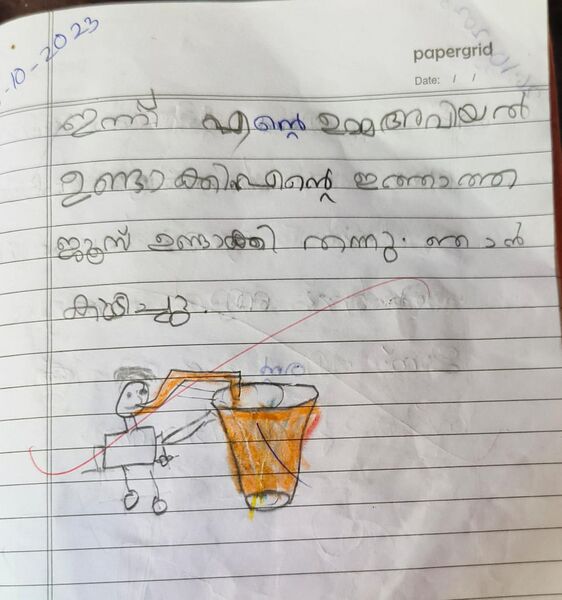 -10-2023
papergrid
Date: / /
ഇന്ന് എന്റെ ഉമ്മ അവിയൽ
ഉണ്ടാക്കി എന്റെ ഇത്താത്ത
ജൂസ് ഉണ്ടാക്കി തന്നു. ഞാൻ
കുടിച്ചു.